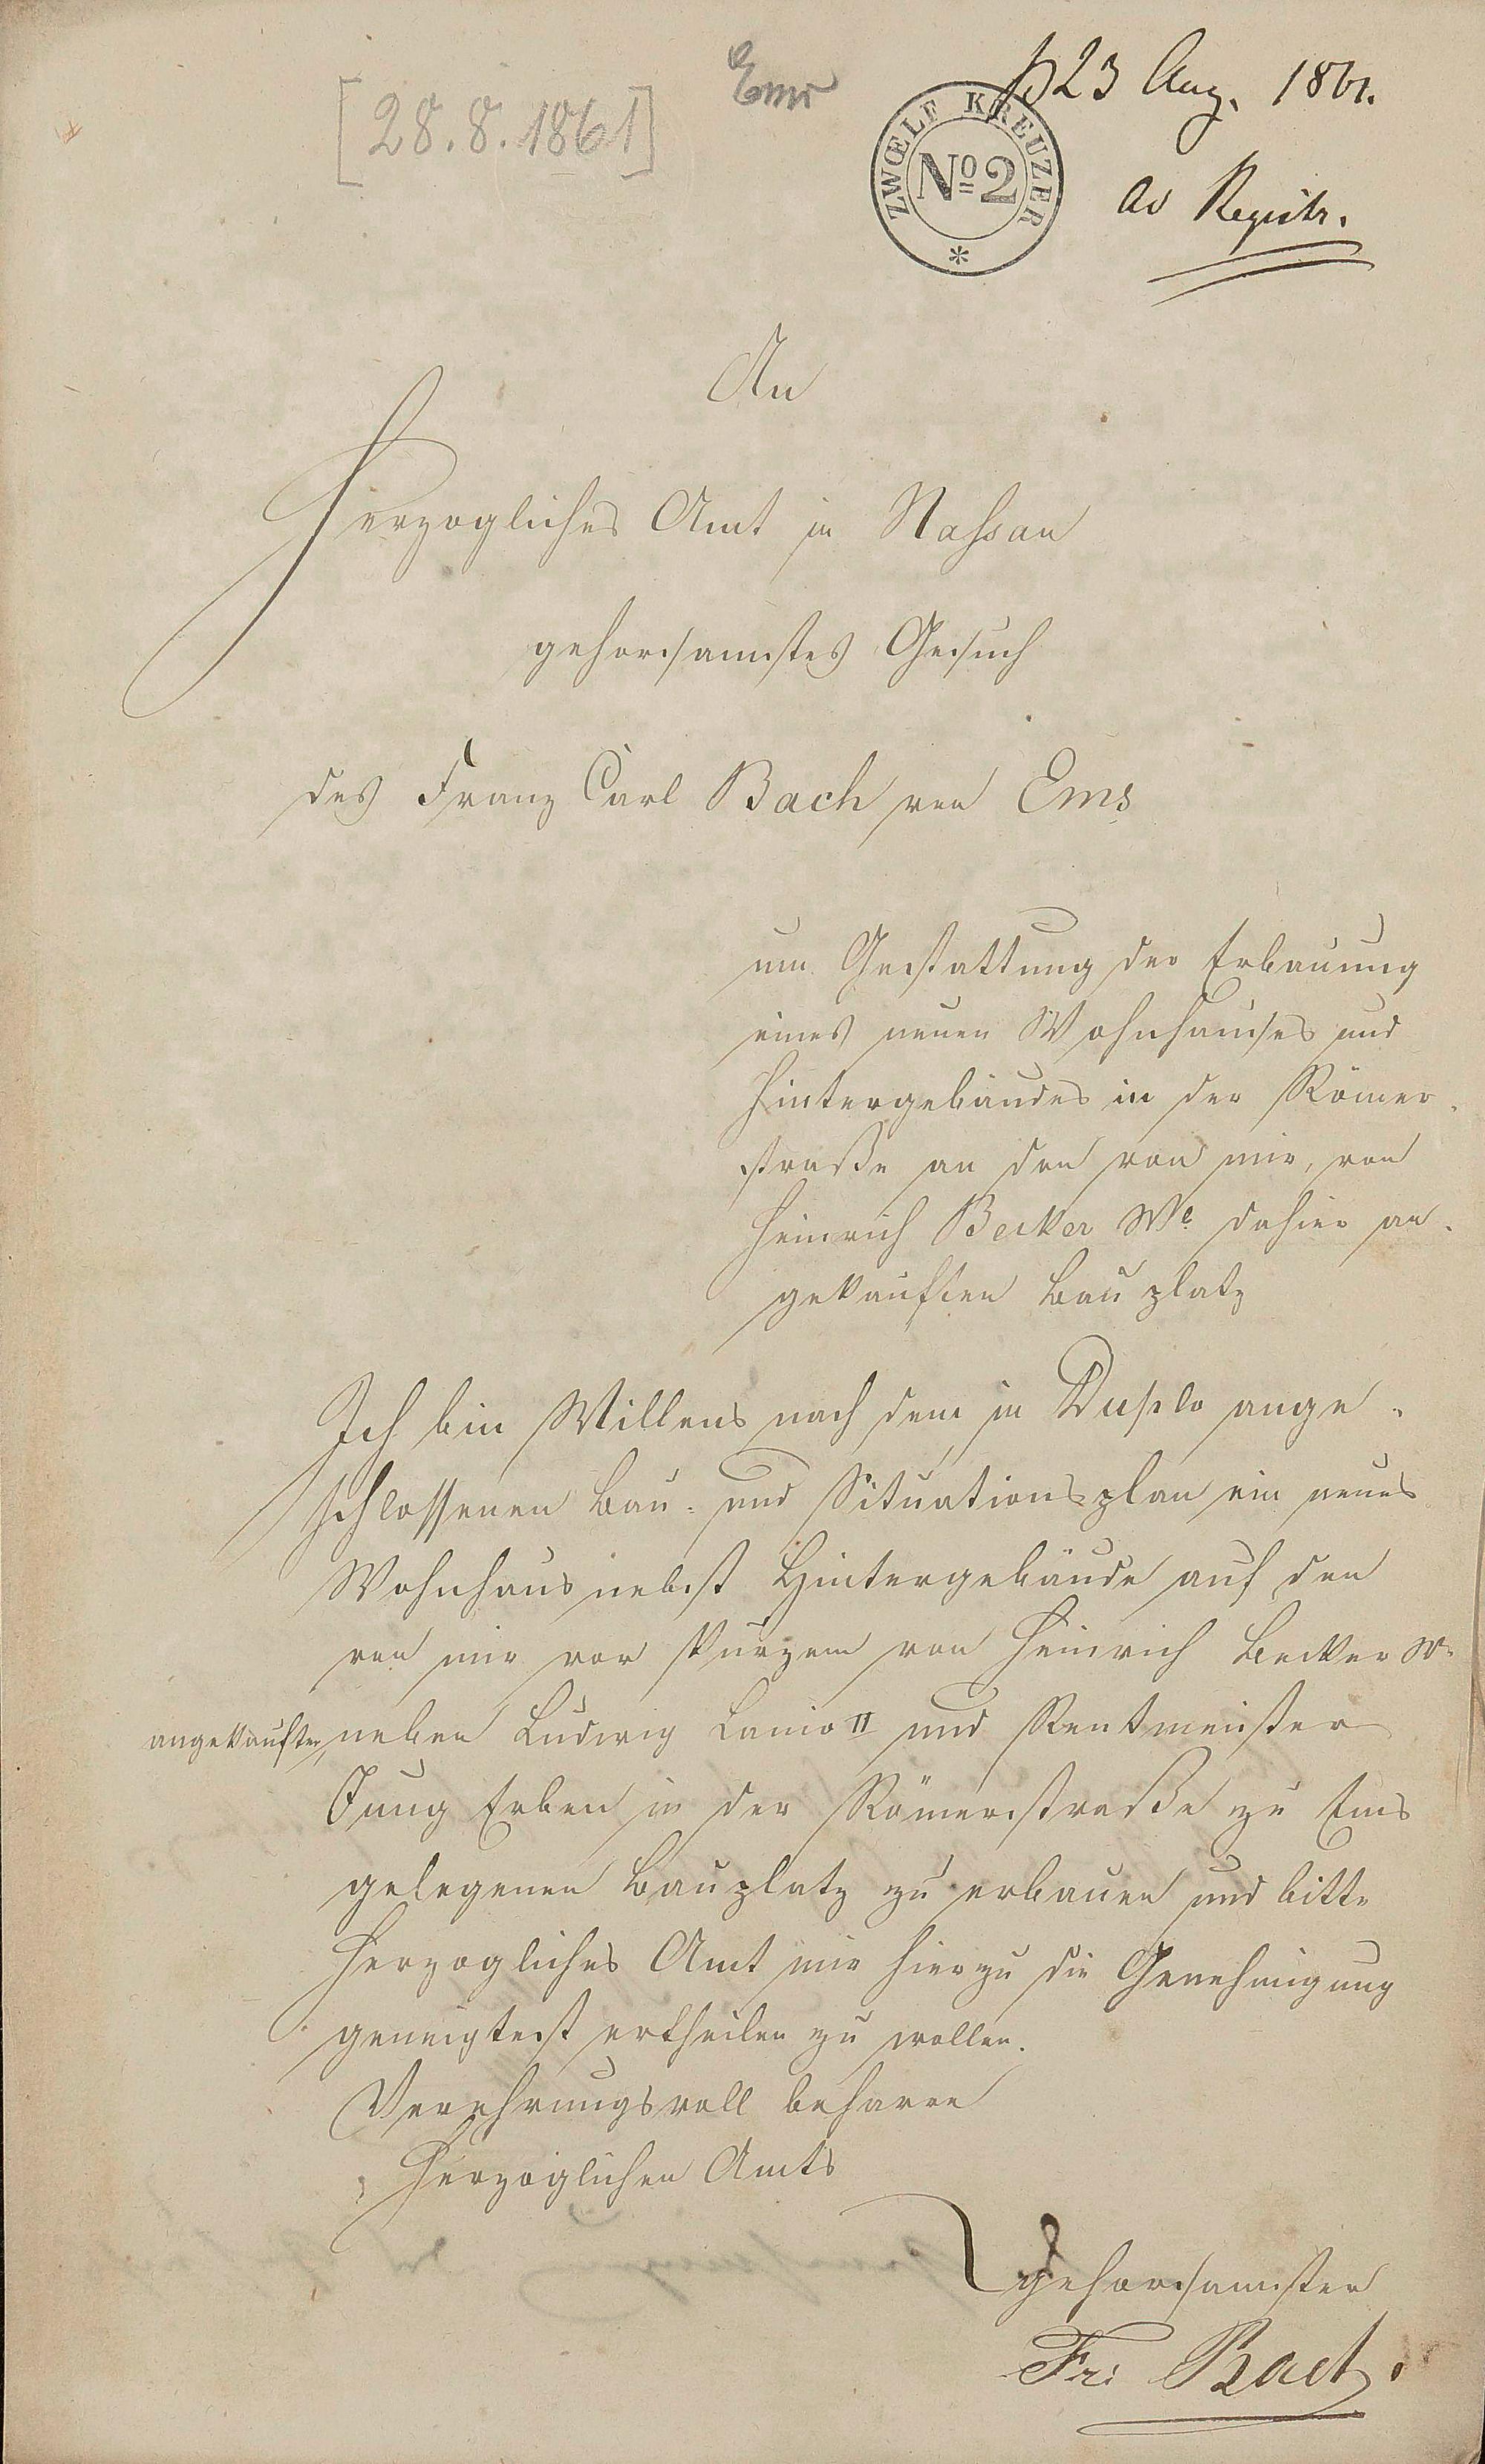 Ems
[28.8.1861]
p 23 Aug. 1861.
ad Registr.
ZWŒLF KREUZER
No 2
An
Herzogliches Amt in Nassau
gehorsamstes Gesuch
des Franz Carl Bach von Ems
um Gestattung der Erbauung
eines neuen Wohnhauses und
Hintergebäudes in der Römer-
straße an den von mir, von
Heinrich Becker We dahier an-
gekauften Bauplatz
Ich bin Willens nach dem in Duplo ange-
schlossenen Bau- und Situationsplan ein neues
Wohnhaus nebst Hintergebäude auf den
von mir vor kurzem von Heinrich Becker We
angekauften, neben Ludwig Lanio II und Rentmeister
Jung Erben in der Römerstraße zu Ems
gelegenen Bauplatz zu erbauen und bitte
Herzogliches Amt mir hierzu die Genehmigung
geneigtest ertheilen zu wollen.
Verehrungsvoll beharre
Herzoglichen Amts
gehorsamster
Fr: Bach.